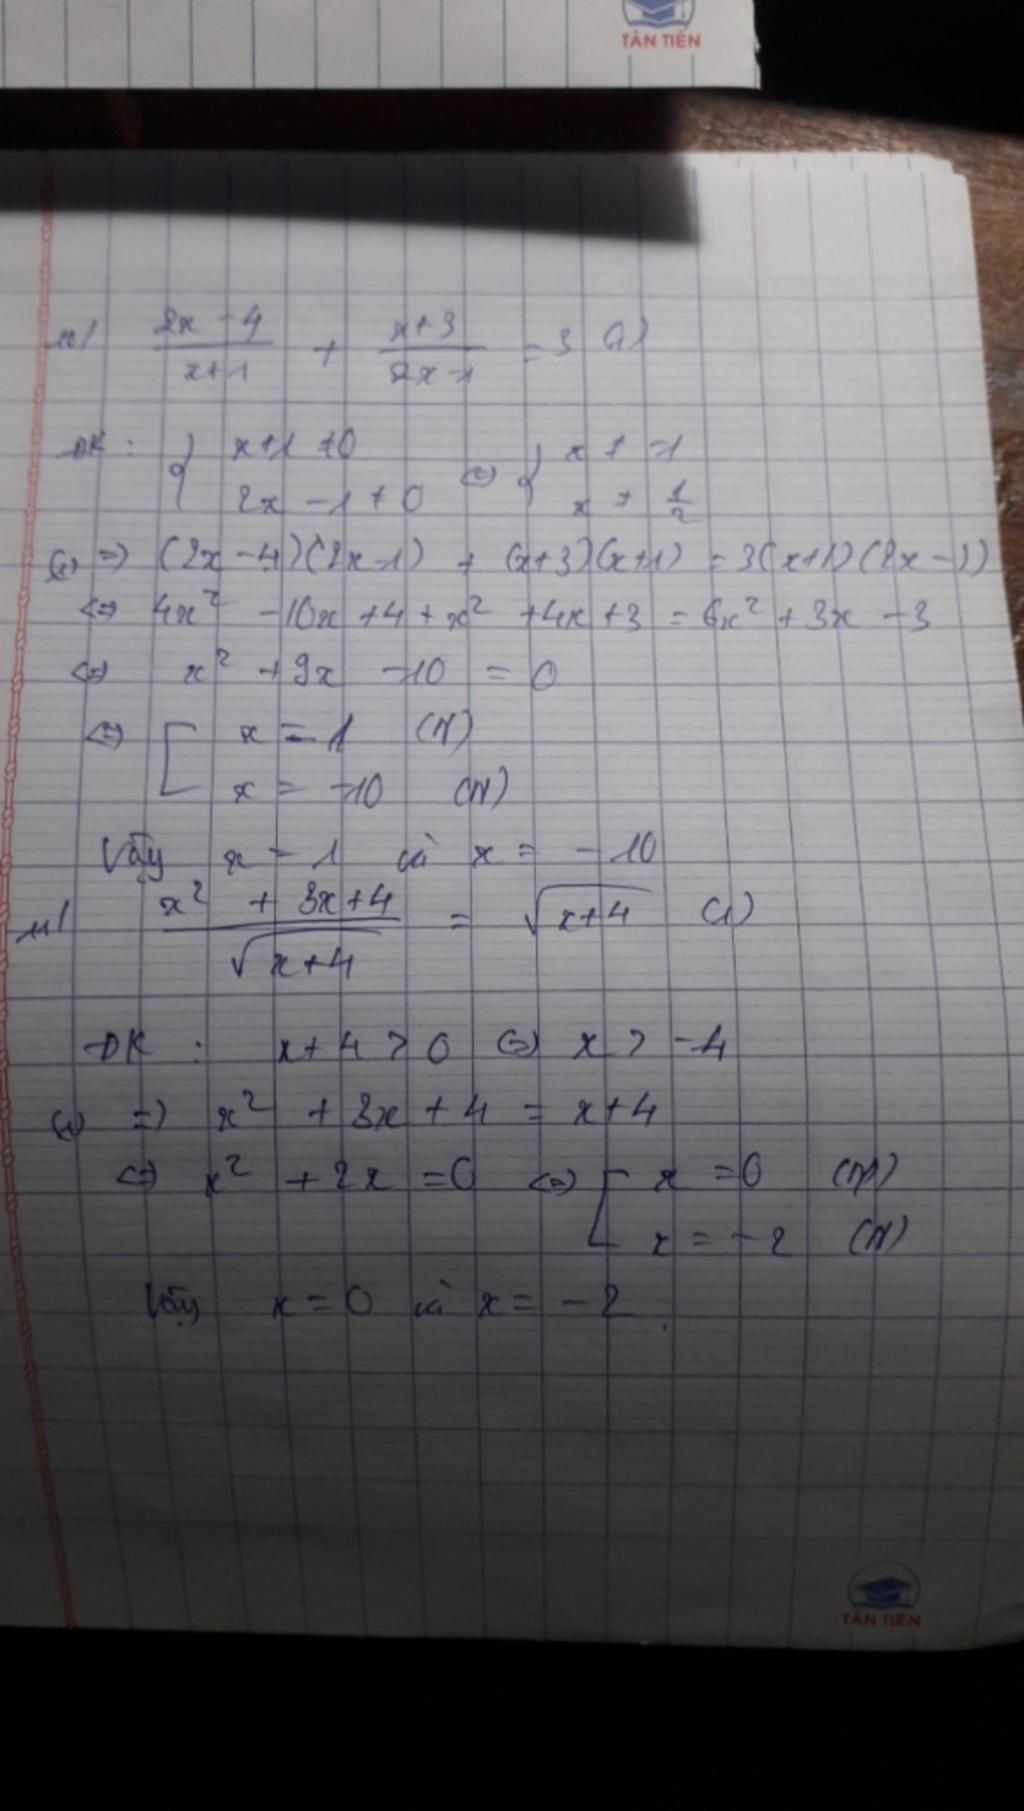 TÂN TIẾN
10/ (2x - 4)/(x+1) + (x+3)/(2x-1) = 3 (1)
ĐK : { x+1 ≠ 0
2x - 1 ≠ 0 <=> { x ≠ -1
x ≠ 1/2
(1) => (2x-4)(2x-1) + (x+3)(x+1) = 3(x+1)(2x-1)
<=> 4x² - 10x + 4 + x² + 4x + 3 = 6x² + 3x - 3
<=> x² + 9x - 10 = 0
<=> [ x = 1 (N)
x = -10 (N)
Vậy x = 1 và x = -10
11/ (x² + 3x + 4)/√(x+4) = √(x+4) (1)
ĐK : x + 4 > 0 <=> x > -4
(1) => x² + 3x + 4 = x + 4
<=> x² + 2x = 0 <=> [ x = 0 (N)
x = -2 (N)
Vậy x = 0 và x = -2.
TÂN TIẾN